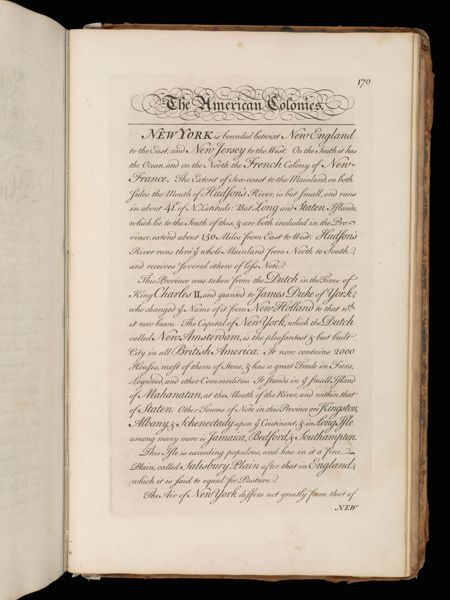 170
The American Colonies.
NEW YORK is bounded betwixt New England
to the East, and New Jersey to the West. On the South it has
the Ocean, and on the North the French Colony of New-
France. The Extent of Sea-coast to the Mainland, on both
sides the Mouth of Hudson's River, is but small, and runs
in about 41° of N. Latitude: But Long and Staten Islands,
which lie to the South of this, & are both included in the Pro-
vince, extend about 150 Miles from East to West. Hudson's
River runs thro' ye whole Mainland from North to South,
and receives several others of less Note.
This Province was taken from the Dutch in the Time of
King Charles II, and granted to James Duke of York;
who changed ye Name of it from New Holland to that wch
it now bears. The Capital of New York, which the Dutch
called New Amsterdam, is the pleasantest & best built
City in all British America. It now contains 2000
Houses, most of them of Stone, & has a great Trade in Furs,
Logwood, and other Commodities. It stands in ye small Island
of Mahanatan, at the Mouth of the River, and within that
of Staten. Other Towns of Note in this Province are Kingston,
Albany, & Schenectady upon ye Continent; & in Long Isle
among many more is Jamaica, Bedford, & Southampton.
This Isle is exceeding populous, and has in it a fine
Plain, called Salisbury Plain after that in England,
which it is said to equal for Pasture.
The Air of New York differs not greatly from that of
NEW